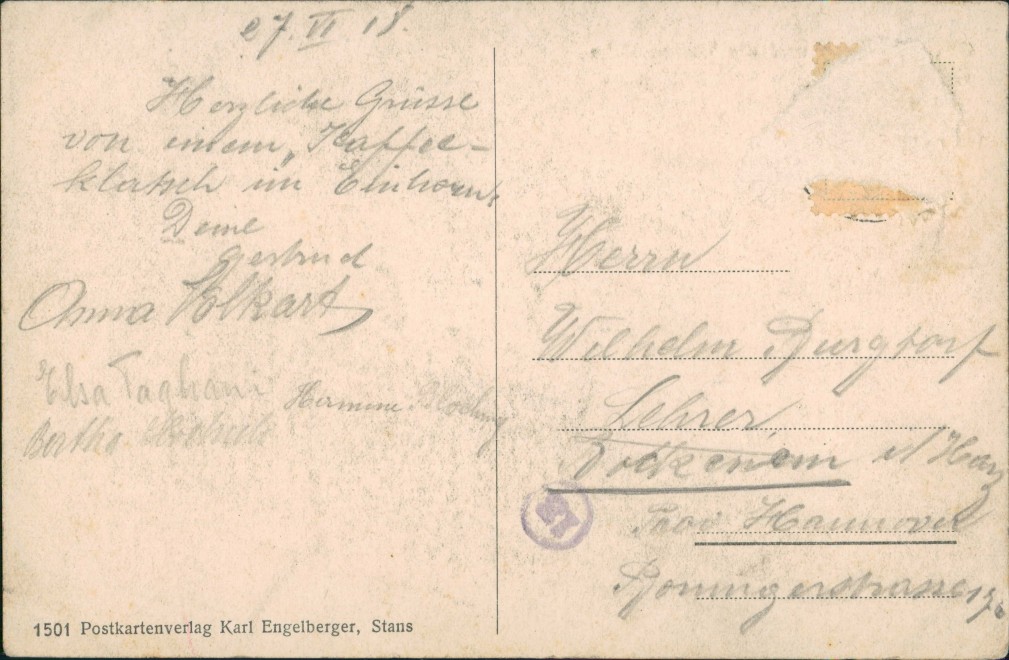 27. VI 18.
Herzliche Grüsse
von einem „Kaffee-
klatsch im Einhorn“
Deine
Gertrud
Anna Volkart
Elsa Tagliani
Bertha
Hermine
Herrn
Wilhelm Burgdorf
Lehrer,
Bockenem a/ Harz
Prov Hannover
1501 Postkartenverlag Karl Engelberger, Stans